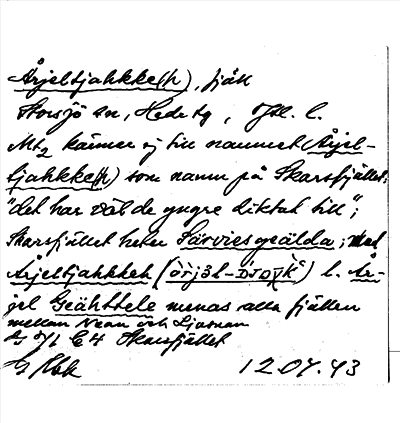 Årjeltjahkke(h), fjäll
Storsjö sn, Hede tg, Jtl. l.
Mtz känner ej till namnet Årjel-
tjahkke(h) som namn på Skarsfjället;
"det har väl de yngre diktat till";
Skarsfjället heter Särviesgeälda; Med
Årjeltjahkkeh l. År-
jel Geähttele menas alla fjällen
mellan Nean och Ljusnan
Skarsfjället
12.04.43